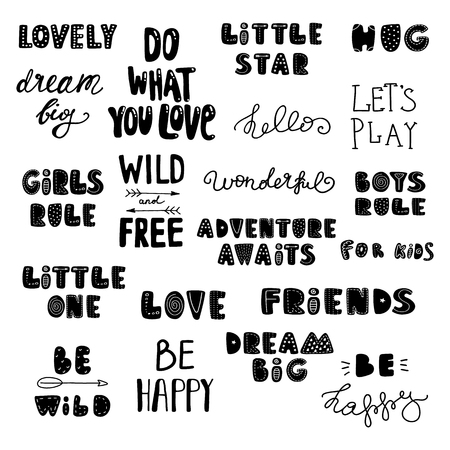 LOVELY
DO
WHAT
YOU LOVE
LiTTLE
STAR
HUG
dream
big
hello
LET'S
PLAY
GiRLS
RULE
WILD
and
FREE
wonderful
BOYS
RULE
ADVENTURE
AWAiTS
FOR KiDS
LiTTLE
ONE
LOVE
FRiENDS
BE
WiLD
BE
HAPPY
DREAM
BiG
BE
happy